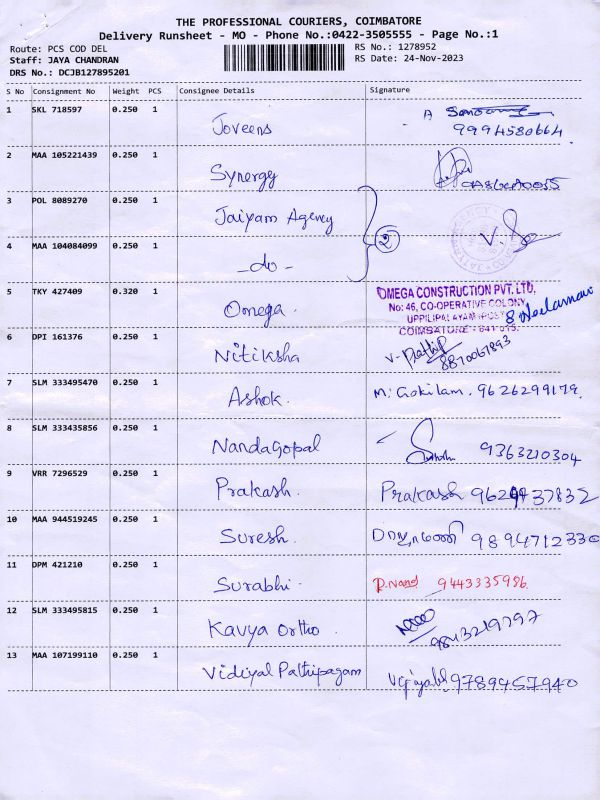 THE PROFESSIONAL COURIERS, COIMBATORE
Delivery Runsheet - MO - Phone No.:0422-3505555 - Page No.:1
Route: PCS COD DEL
RS No.: 1278952
Staff: JAYA CHANDRAN
RS Date: 24-Nov-2023
DRS No.: DCJB127895201
S No Consignment No Weight PCS Consignee Details Signature
1 SKL 718597 0.250 1 Joveens A 9994580664
2 MAA 105221439 0.250 1 Synergy
3 POL 8089270 0.250 1 Jaiyam Agency
2 V.
4 MAA 104084099 0.250 1 -do-
5 TKY 427409 0.320 1 Omega.
OMEGA CONSTRUCTION PVT. LTD.
No: 46, CO-OPERATIVE COLONY,
UPPILIPALAYAM (POST)
COIMBATORE - 641 015.
6 DPI 161376 0.250 1 Nitiksha V. Prathip 8870067893
7 SLM 333495470 0.250 1 Ashok. M. Gokilam. 9626299179.
8 SLM 333435856 0.250 1 NandaGopal 9363210304
9 VRR 7296529 0.250 1 Prakash. Prakash
10 MAA 944519245 0.250 1 Suresh. 9894712330
11 DPM 421210 0.250 1 Surabhi. P. Nand 9443335986
12 SLM 333495815 0.250 1 Kavya Ortho. 9843219797
13 MAA 107199110 0.250 1 Vidiyal Pathipagam 9789457940